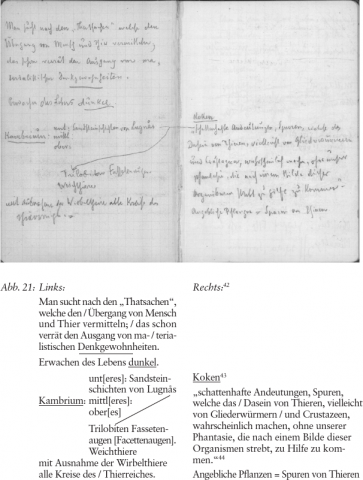 Man sucht nach den „Thatsachen“ welche den
Übergang von Mensch und Thier vermitteln;
das schon verrät den Ausgang von ma-
terialistischen Denkgewohnheiten.
Erwachen des Lebens dunkel.
unt: Sandsteinschichten von Lugnås
Kambrium: mittl:
ober:
Trilobiten
Weichthiere
mit Ausnahme der Wirbelthiere alle Kreise des
Koken
schattenhafte Andeutungen, Spuren, welche das
Dasein von Thieren, vielleicht von Gliederwürmern
und Crustazeen, wahrscheinlich machen, ohne unserer
Phantasie, die nach einem Bilde dieser
Organismen strebt, zu Hilfe zu kommen“
Angebliche Pflanzen = Spuren von Thieren
Abb. 21: Links:
Man sucht nach den „Thatsachen“,
welche den / Übergang von Mensch
und Thier vermitteln; / das schon
verrät den Ausgang von ma- / teria-
listischen Denkgewohnheiten.
Erwachen des Lebens dunkel.
unt[eres]: Sandstein-
schichten von Lugnås
Kambrium: mittl[eres]:
ober[es]
Trilobiten Fasseten-
augen [Facettenaugen].
Weichthiere
mit Ausnahme der Wirbelthiere
alle Kreise des / Thierreiches.
Rechts:42
Koken43
„schattenhafte Andeutungen, Spuren,
welche das / Dasein von Thieren, vielleicht
von Gliederwürmern / und Crustazeen,
wahrscheinlich machen, ohne unserer
Phantasie, die nach einem Bilde dieser
Organismen strebt, zu Hilfe zu kom-
men.“44
Angebliche Pflanzen = Spuren von Thieren